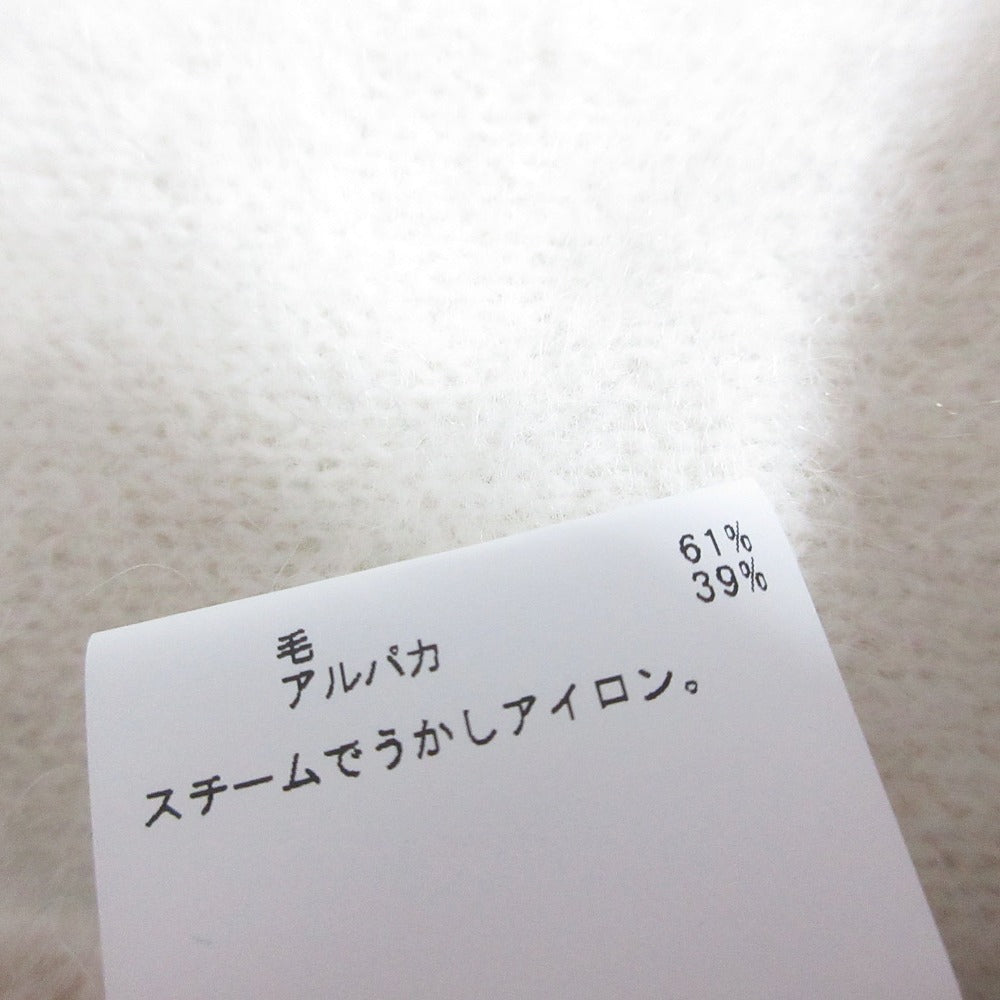 毛 61%
アルパカ 39%
スチームでうかしアイロン。